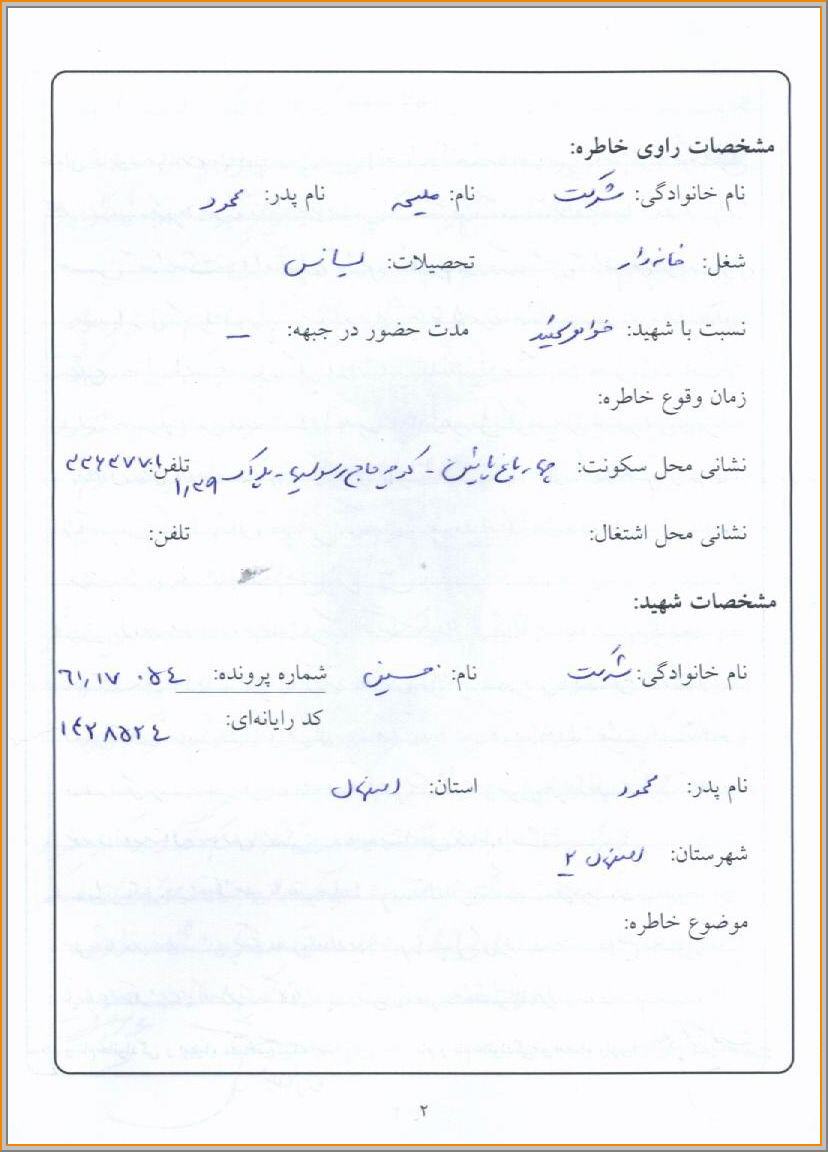 مشخصات راوی خاطره:
نام خانوادگی: شرکت نام: ملیحه نام پدر: محمود
شغل: خانه‌دار تحصیلات: لیسانس
نسبت با شهید: خواهر شهید مدت حضور در جبهه: –
زمان وقوع خاطره:
نشانی محل سکونت: چهارباغ پایین - کوچه حاج رسولیها - پلاک تلفن:
نشانی محل اشتغال: تلفن:
مشخصات شهید:
نام خانوادگی: شرکت نام: حسین شماره پرونده:
کد رایانه‌ای: ۱۴۲۸۵۲۴
نام پدر: محمود استان: اصفهان
شهرستان: اصفهان ۲
موضوع خاطره:
۲